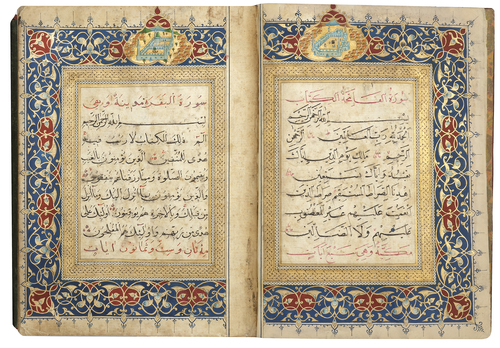 سورة الفاتحة الكتاب
بسم الله الرحمن الرحيم
الحمد لله رب العالمين الرحمن
الرحيم مالك يوم الدين اياك
نعبد واياك نستعين
اهدنا الصراط المستقيم صراط الذين
انعمت عليهم غير المغضوب
عليهم ولا الضالين
مكية وهي سبع ايات
سورة البقرة مدينة وهي
بسم الله الرحمن الرحيم
الم ذلك الكتاب لا ريب فيه
هدى للمتقين الذين يؤمنون بالغيب
ويقيمون الصلوة ومما رزقناهم ينفقون
والذين يؤمنون بما انزل اليك وما انزل
من قبلك وبالاخرة هم يوقنون اولئك على
هدى من ربهم واولئك هم المفلحون
مائتان وست وثمانون ايات